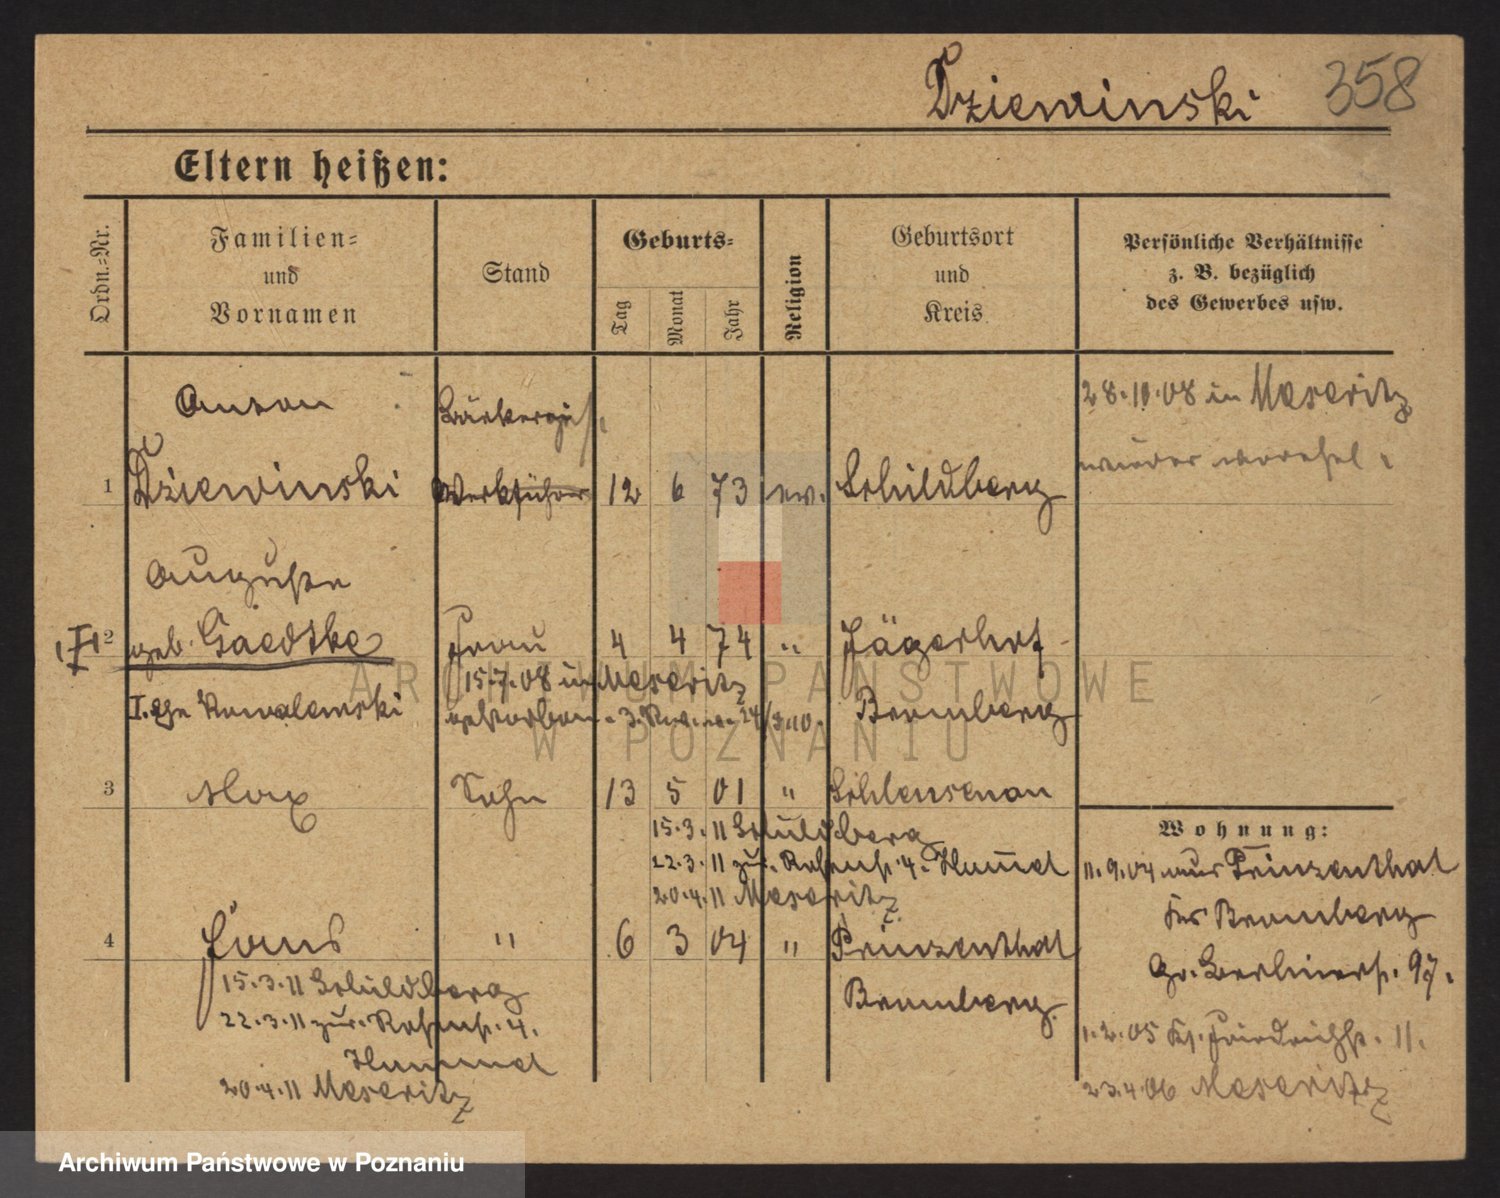 Dziewinski 358
Eltern heißen:
Ordn.=Nr.
Familien=
und
Vornamen
Stand
Geburts=
Tag
Monat
Jahr
Religion
Geburtsort
und
Kreis
Persönliche Verhältnisse
z. B. bezüglich
des Gewerbes usw.
Anton
28.10.08 in Meseritz
1 Dziewinski Werkführer 12 6 73 ev. Schildberg
Auguste
2 geb. Gaedtke Frau 4 4 74 " Jägerhof
15.7.08 in Meseritz
I. Ehe Kowalewski gestorben Bromberg
3 Max Sohn 13 5 01 " Schleusenau
15.3.11 Schildberg
22.3.11 zur. 4. Hummel
20.4.11 Meseritz
4 Louis " 6 3 04 " Prinzenthal
Bromberg
15.3.11 Schildberg
22.3.11 zur. 4.
Hummel
20.4.11 Meseritz
Wohnung:
11.9.04 aus Prinzenthal
Krs Bromberg
Gr. Berlinerstr. 97.
1.2.05 Friedrichstr. 11.
23.4.06 Meseritz
ARCHIWUM PAŃSTWOWE
W POZNANIU
Archiwum Państwowe w Poznaniu